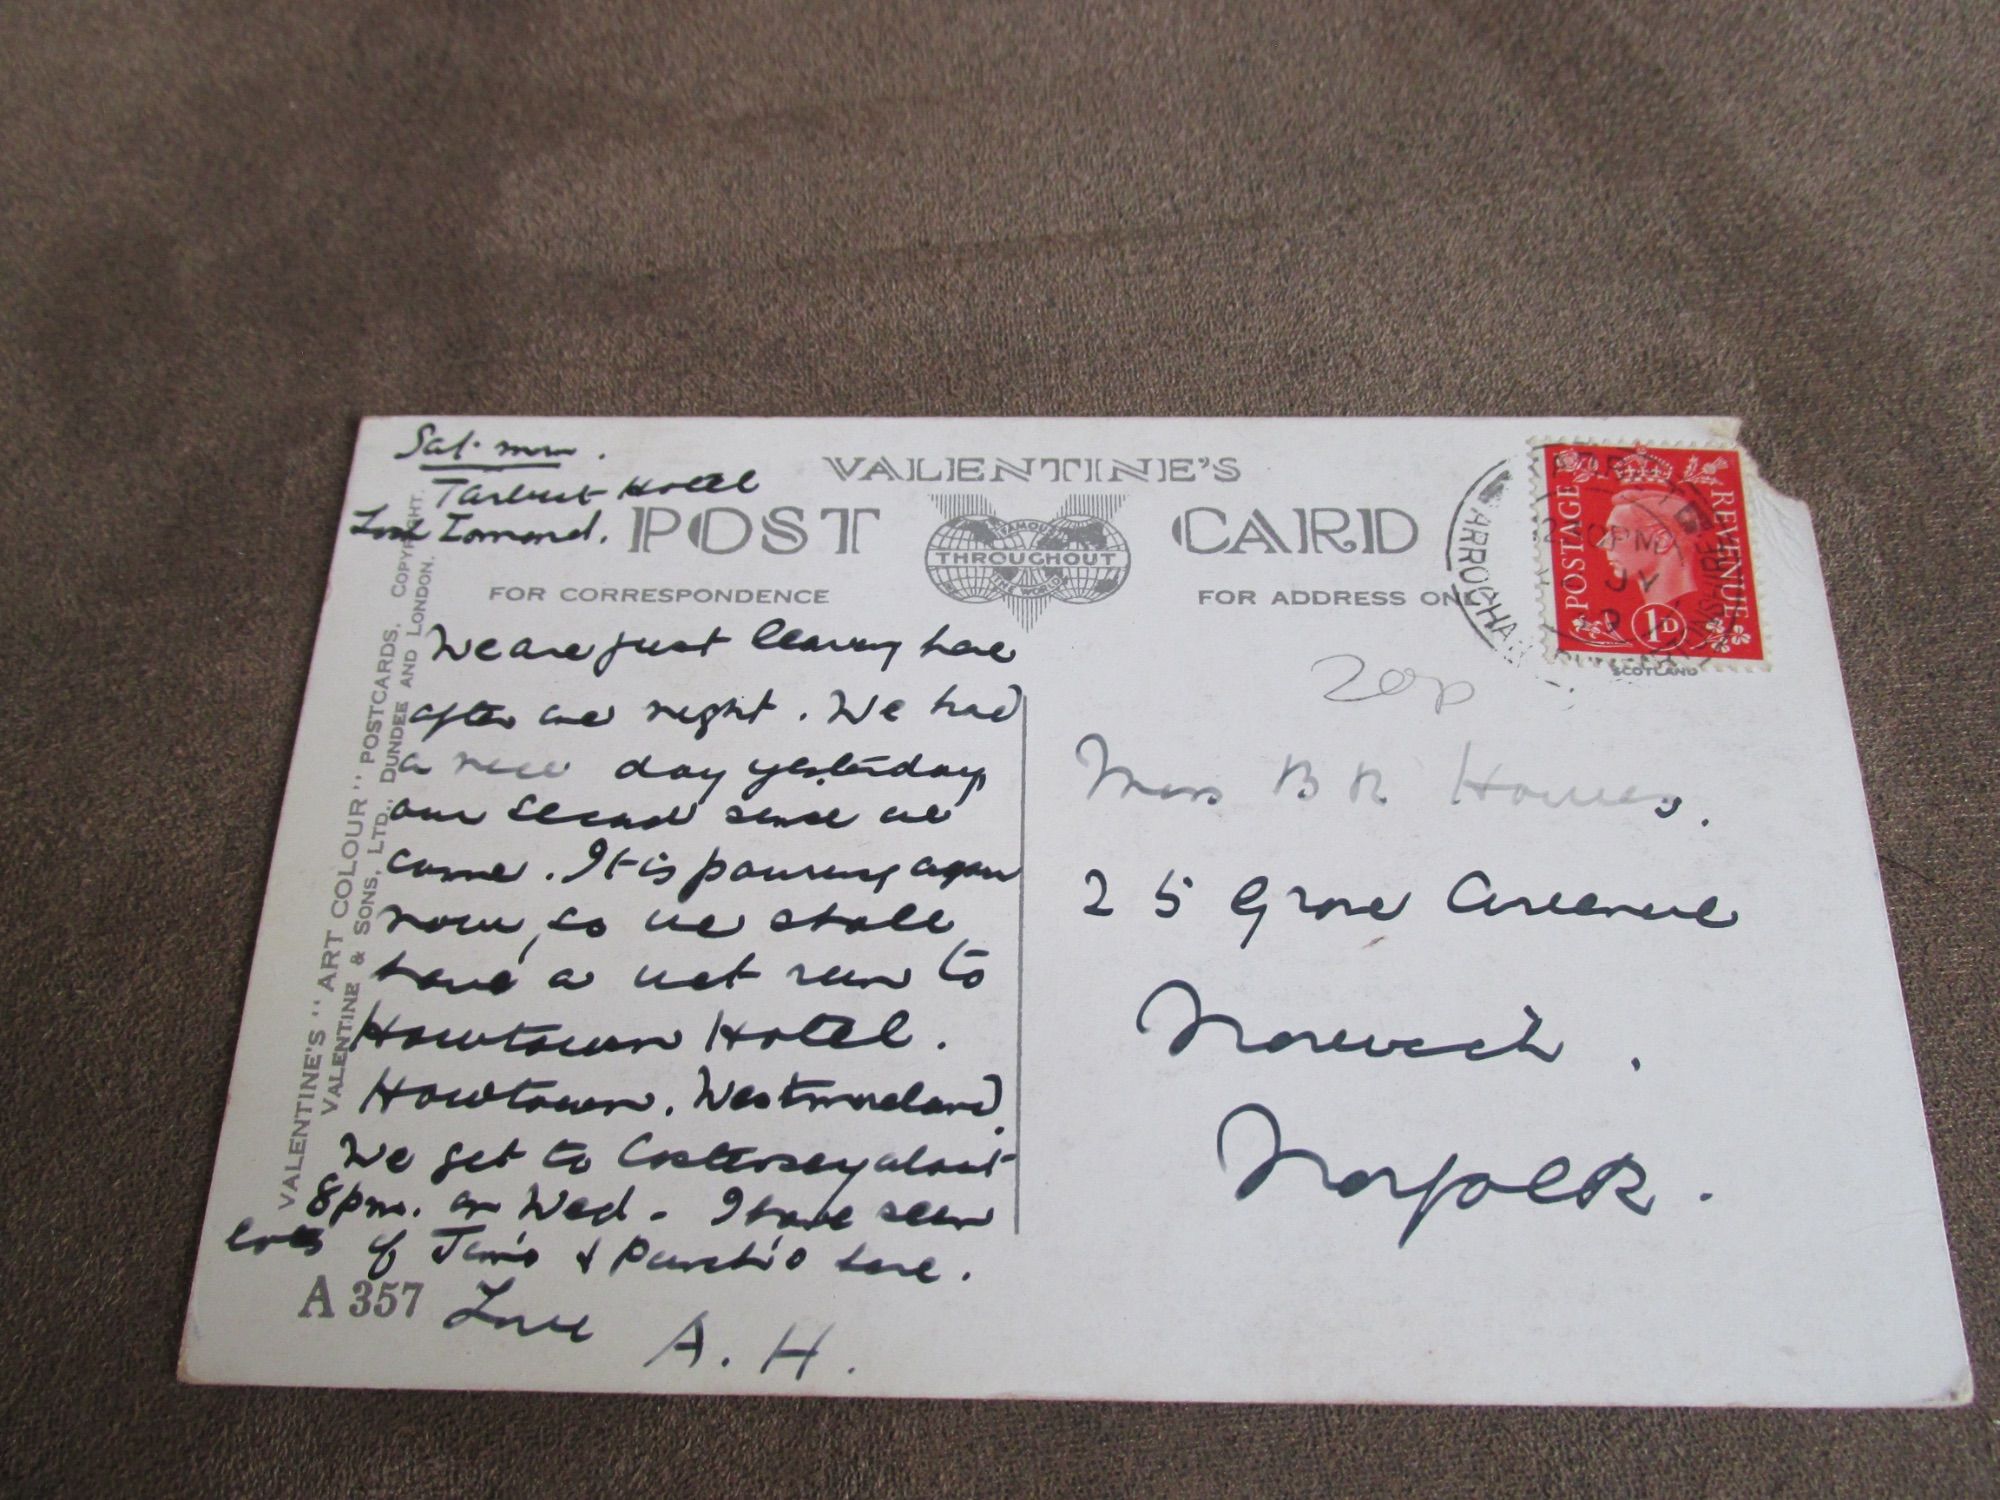 Sat. morn.
Tarbert Hotel
Loch Lomond.
VALENTINE'S
POST CARD
FAMOUS
THROUGHOUT
THE WORLD
FOR CORRESPONDENCE
FOR ADDRESS ONLY
We are just leaving here
after one night. We had
a nice day yesterday
our second since we
came. It is pouring again
now, so we shall
have a wet run to
Howtown Hotel.
Howtown. Westmoreland.
We get to Costessey about
8pm. on Wed. I have seen
lots of & here.
Love
A. H.
VALENTINE'S "ART COLOUR" POSTCARDS. COPYRIGHT.
VALENTINE & SONS, LTD., DUNDEE AND LONDON.
A 357
ARROCHAR
PM
JY
SCOTLAND
POSTAGE
REVENUE
1D
20p
Miss B R
25 Grove Avenue
Norwich.
Norfolk.